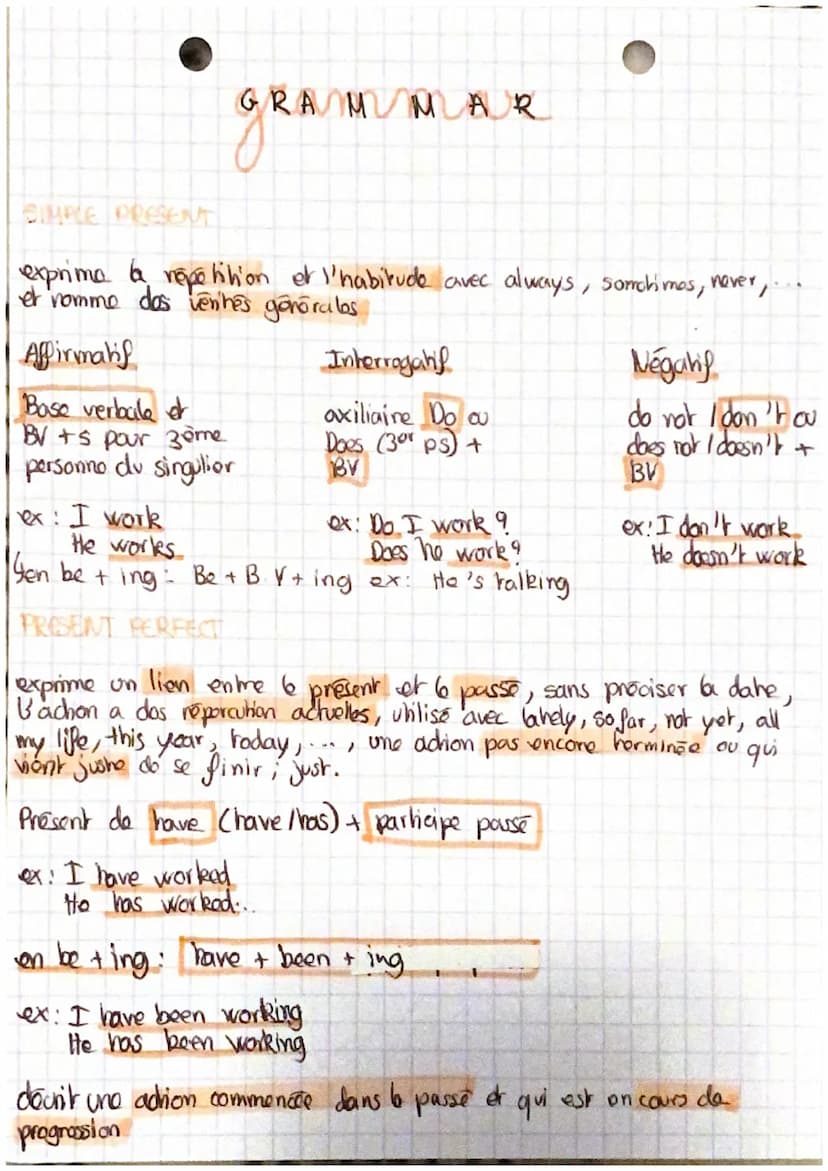 GRAMMAR
SIMPLE PRESENT
exprime la répétition et l'habitude avec always, sometimes, never, ...
et nomme des vérités générales
Affirmatif Interrogatif Négatif
Base verbale et axiliaire Do ou do not / don't ou
BV +s pour 3ème Does (3er ps) + does not / doesn't +
personne du singulier BV BV
ex : I work ex: Do I work? ex: I don't work
He works Does he work? He doesn't work
en be + ing : Be + B.V + ing ex: He's talking
PRESENT PERFECT
exprime un lien entre le présent et le passé, sans préciser la date,
l'action a des réporcution actuelles, utilisé avec lately, so far, not yet, all
my life, this year, today, ..., une action pas encore terminée ou qui
vient juste de se finir ; just.
Présent de have (have/has) + participe passé
ex : I have worked
He has worked...
en be + ing : have + been + ing
ex : I have been working
He has been working
décrit une action commencée dans le passé et qui est en cours de
progression